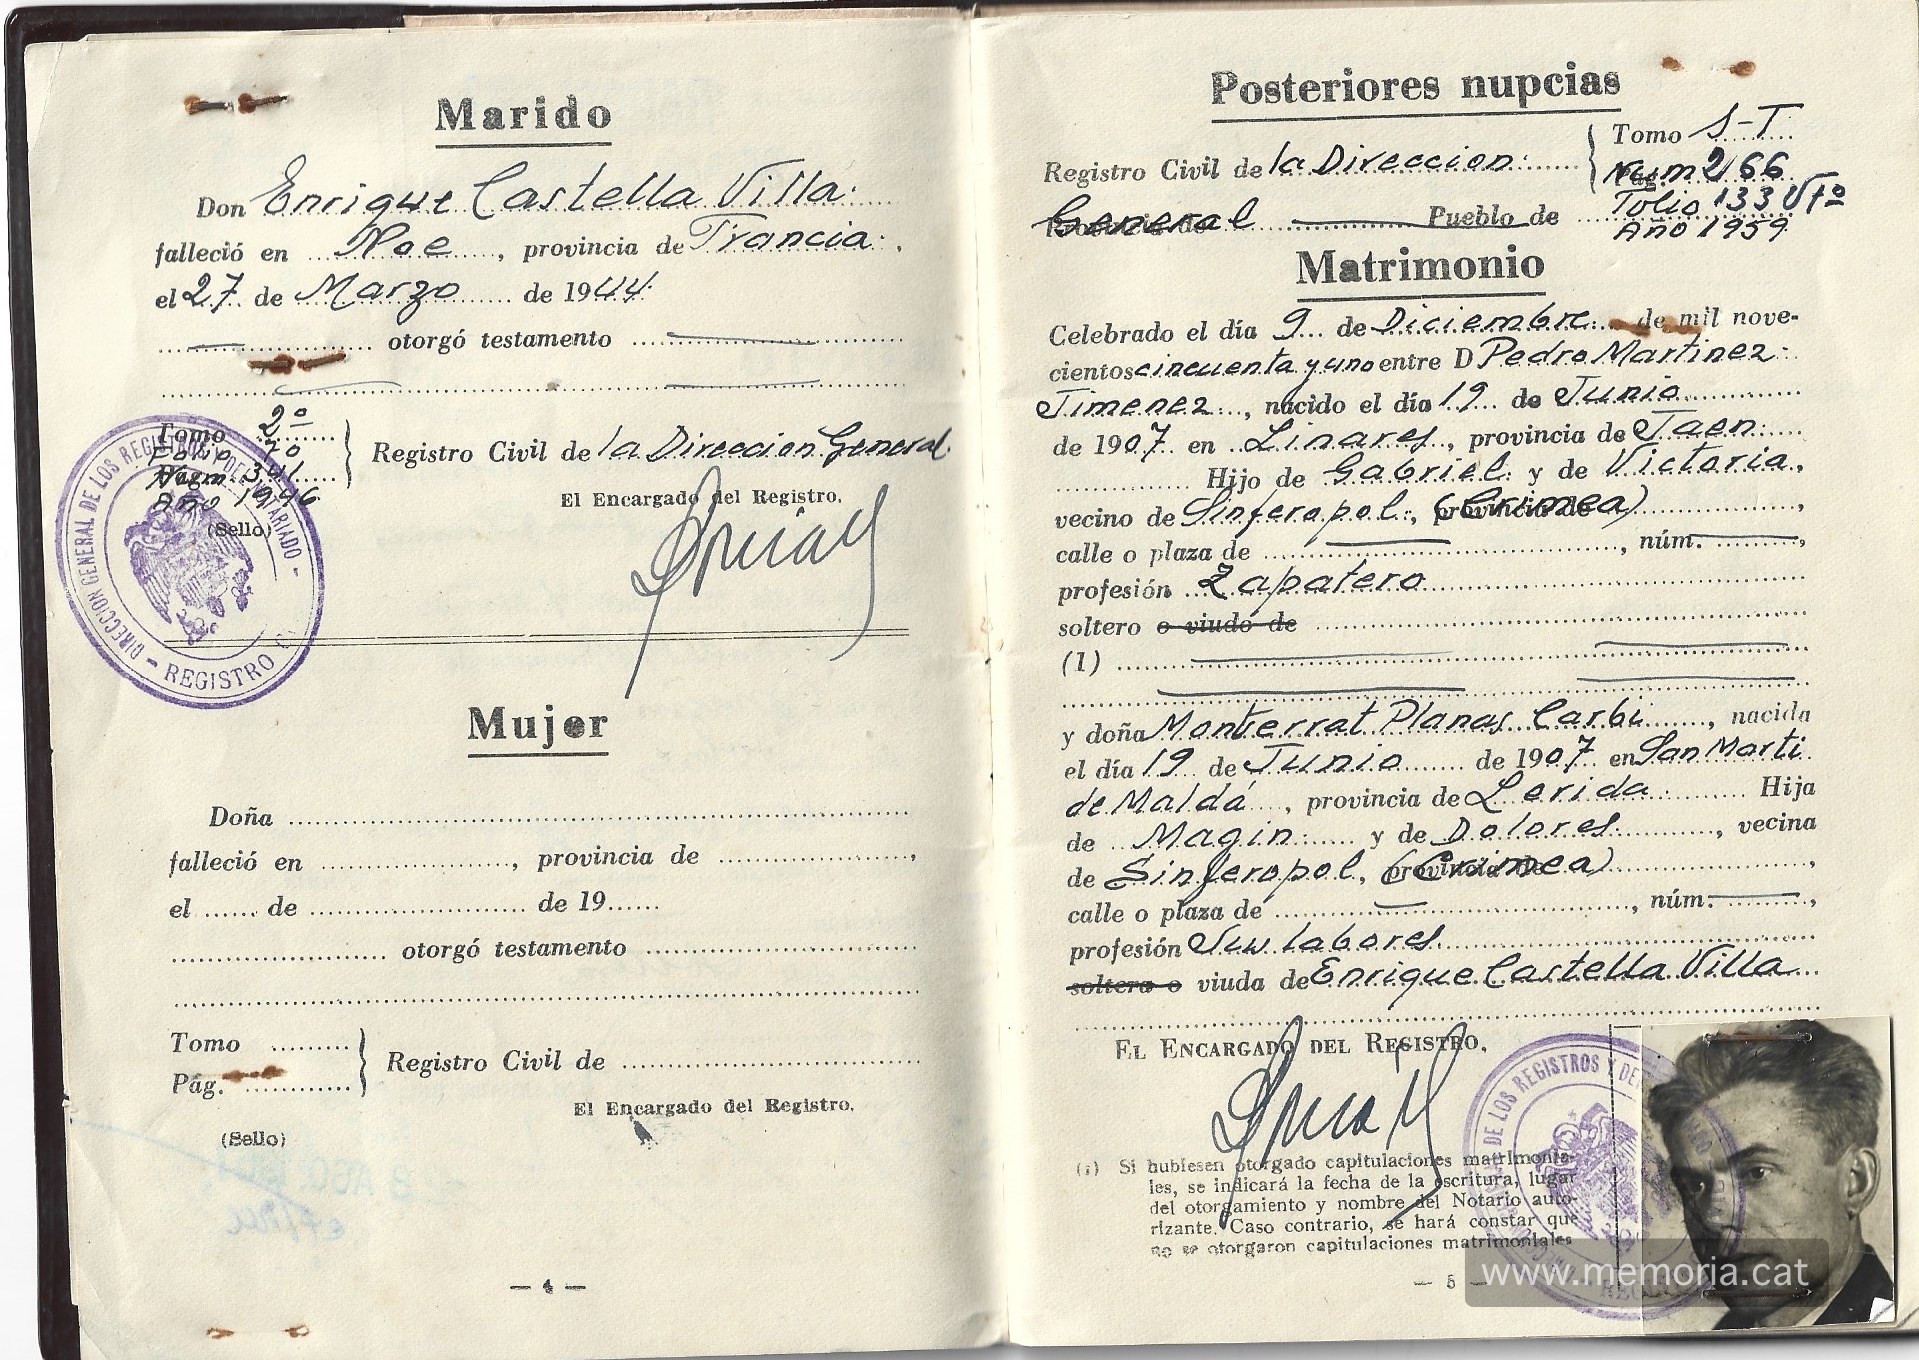 Marido
Don Enrique Castella Villa
falleció en Noe, provincia de Francia.
el 27 de Marzo de 1944
otorgó testamento
Tomo 2º
Folio 70
Núm. 341
Año 1946
(Sello)
Registro Civil de la Direccion General
El Encargado del Registro.
DIRECCION GENERAL DE LOS REGISTROS Y DEL NOTARIADO - REGISTRO
Mujer
Doña
falleció en , provincia de ,
el de de 19
otorgó testamento
Tomo
Pág.
Registro Civil de
El Encargado del Registro.
(Sello)
— 4 —
Posteriores nupcias
Registro Civil de la Direccion
General Pueblo de
Tomo S-T
Num 266
Folio 133 Vtº
Año 1959
Matrimonio
Celebrado el día 9 de Diciembre de mil nove-
cientos cincuenta y uno entre D Pedro Martinez
Jimenez, nacido el día 19 de Junio
de 1907 en Linares, provincia de Jaen
Hijo de Gabriel y de Victoria,
vecino de Sinferopol, (Crimea),
calle o plaza de , núm. ,
profesión Zapatero
soltero o viudo de
(1)
y doña Montserrat Planas Carbi, nacida
el día 19 de Junio de 1907 en San Marti
de Maldá, provincia de Lerida Hija
de Magin y de Dolores, vecina
de Sinferopol, (Crimea),
calle o plaza de , núm. ,
profesión Sus labores
soltera o viuda de Enrique Castella Villa
EL ENCARGADO DEL REGISTRO,
DE LOS REGISTROS Y DEL
(1) Si hubiesen otorgado capitulaciones matrimonia-
les, se indicará la fecha de la escritura, lugar
del otorgamiento y nombre del Notario auto-
rizante. Caso contrario, se hará constar que
no se otorgaron capitulaciones matrimoniales
— 5 —
www.memoria.cat